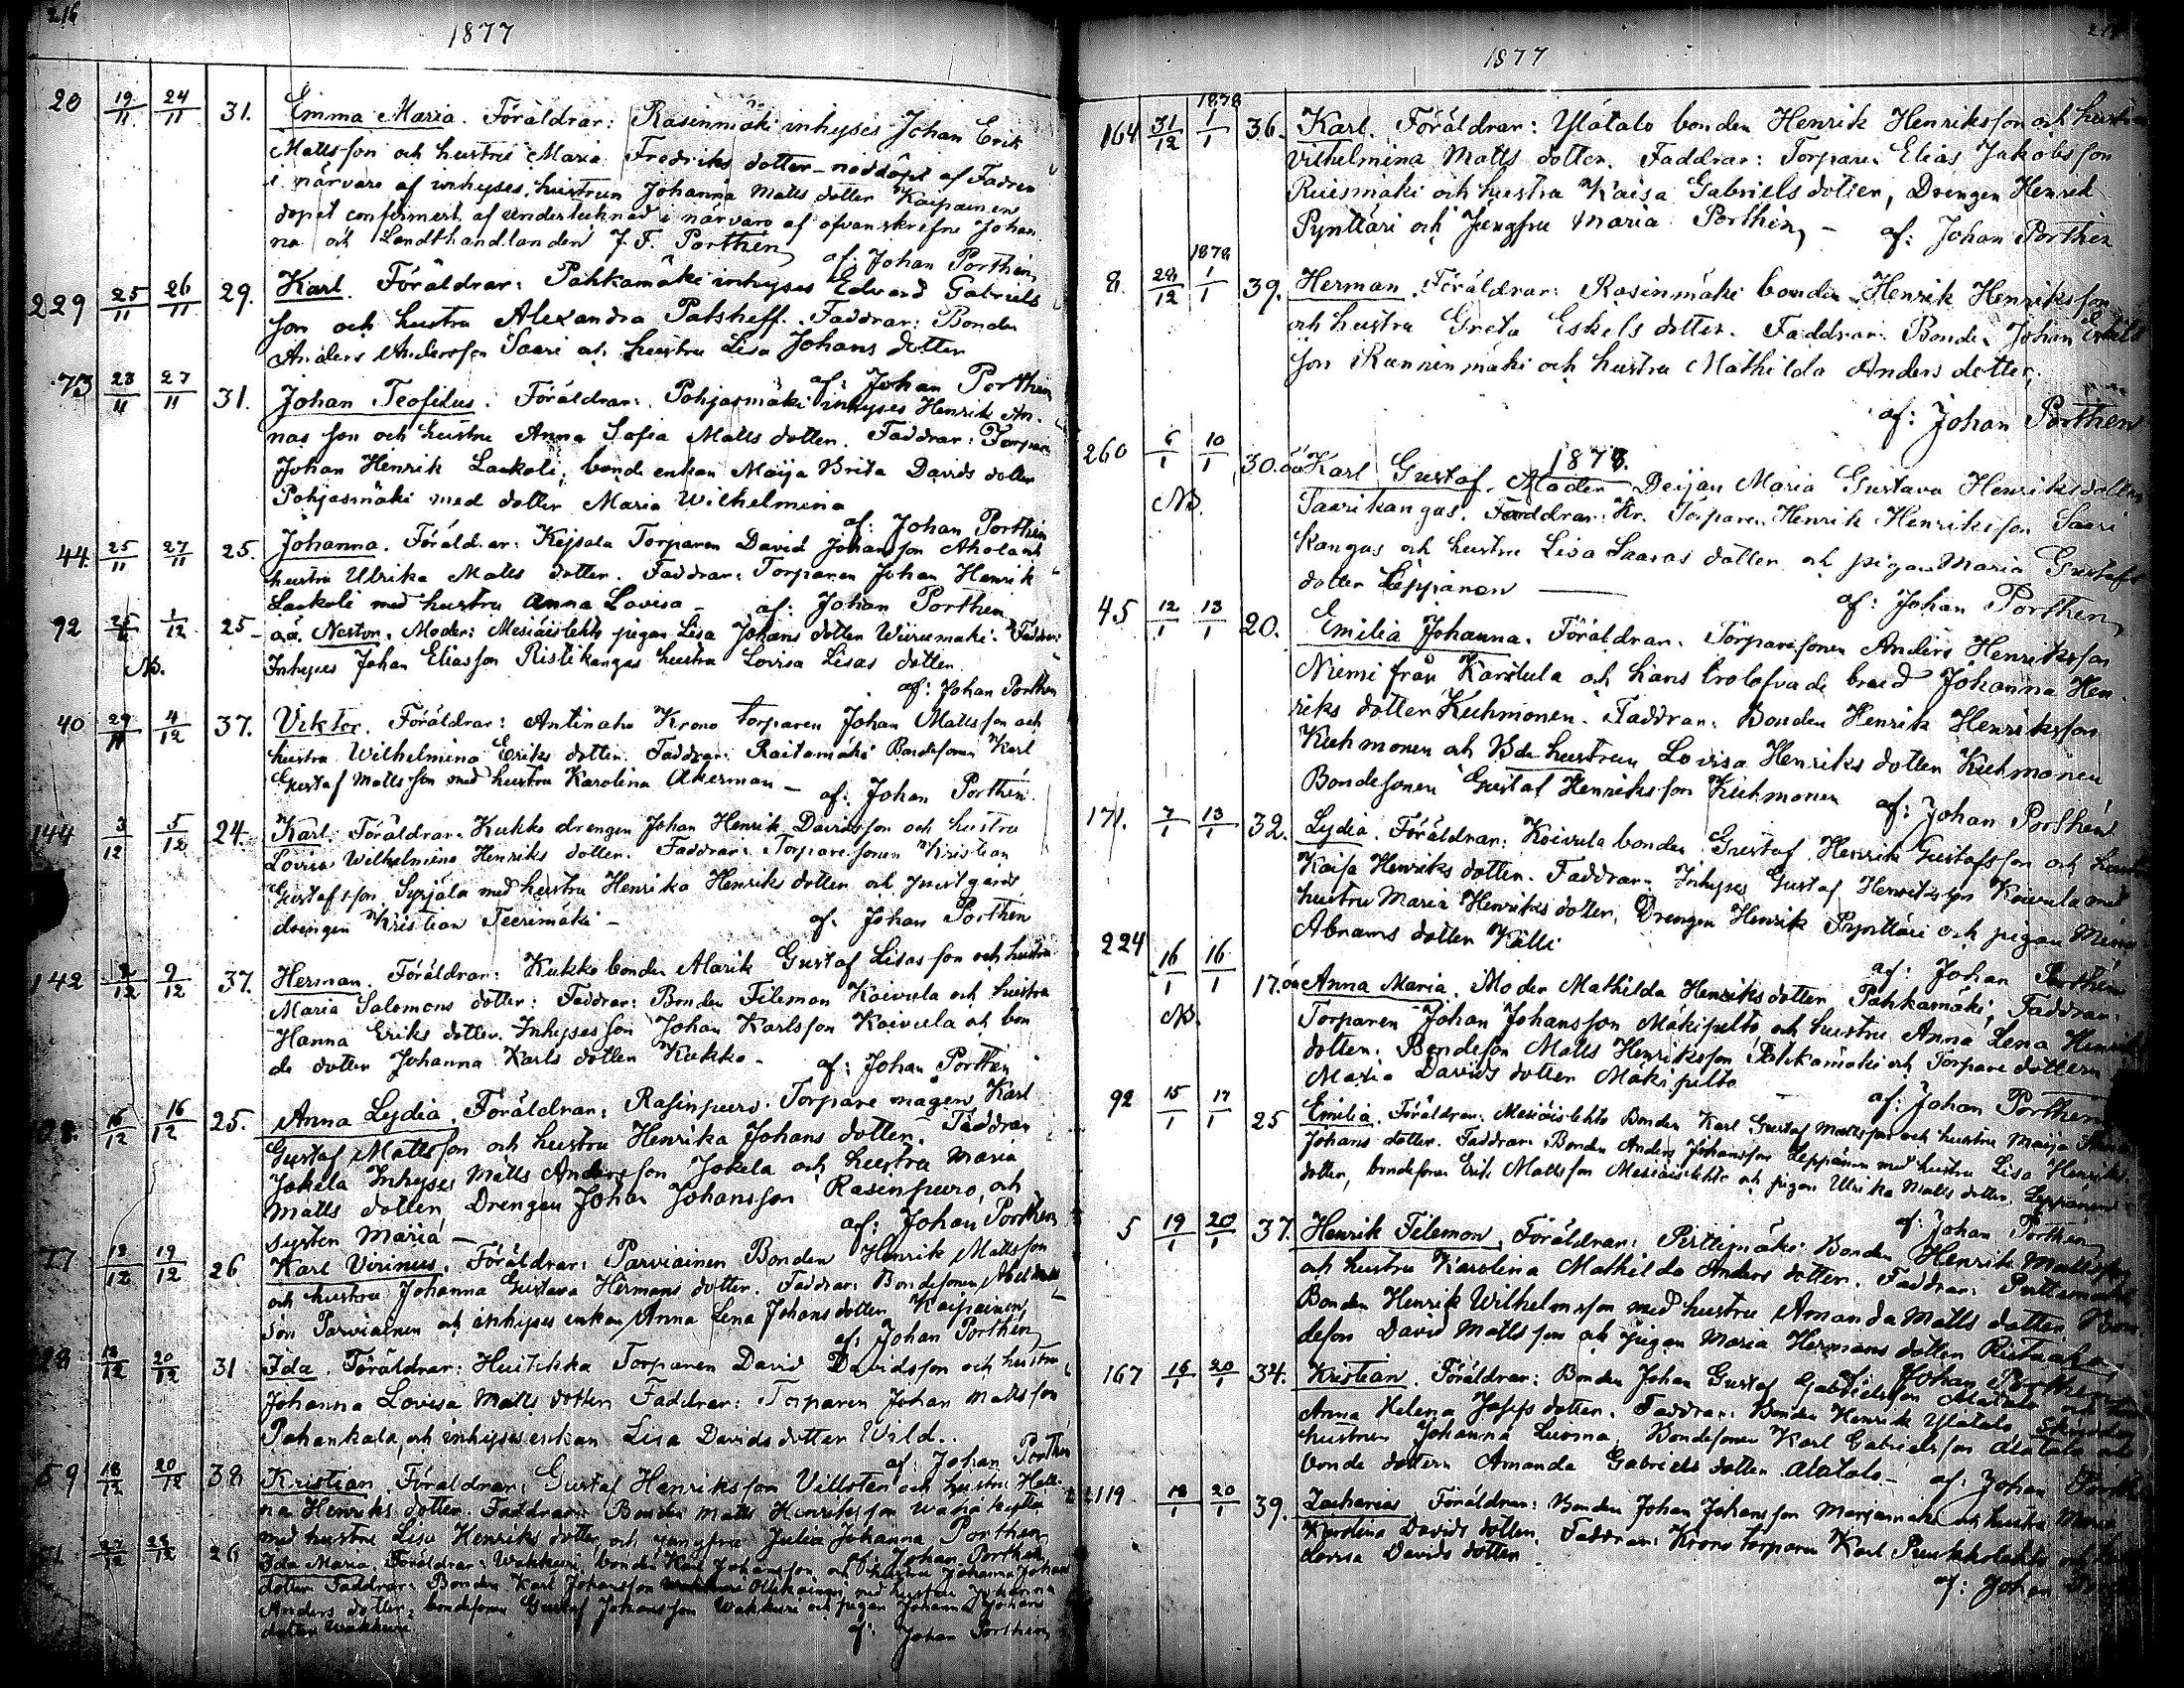 216
1877
20 19/11 24/11 31. Emma Maria. Föräldrar: Rasinmäki inhyses Johan Erik
Mattsson och hustru Maria Fredriks dotter - nöddöpt af Fadren
i närvaro af inhyses hustrun Johanna Matts dotter Kaipainen
dopet confirmert af undertecknad i närvaro af ofvanskrifne Johan
na och Landthandlanden J. F. Porthen
af: Johan Porthen
229 25/11 26/11 29. Karl. Föräldrar: Pahkamäki inhyses Edvard Gabriels
son och hustru Alexandra Patsheff. Faddrar: Bonden
Anders Andersson Saari och hustru Lisa Johans dotter
af: Johan Porthen
73 23/11 27/11 31. Johan Teofilus. Föräldrar: Pohjasmäki inhyses Henrik An-
nas son och hustru Anna Sofia Matts dotter. Faddrar: Torparen
Johan Henrik Laukoli, bonde enkan Maija Brita Davids dotter
Pohjasmäki med dotter Maria Wilhelmina
af: Johan Porthen
44. 25/11 27/11 25. Johanna. Föräldrar: Kejsala Torparen David Johansson Ahola och
hustru Ulrika Matts dotter. Faddrar: Torparen Johan Henrik
Laukoli med hustru Anna Lovisa - af: Johan Porthen
92 1/12 25- oä. Nestor. Moder: Mesiäislehto pigan Lisa Johans dotter Wiiremäki. Faddrar:
NB. Inhyses Johan Eliasson Ristikangas hustru Lovisa Lisas dotter.
af: Johan Porthen
40 29/11 4/12 37. Viktor. Föräldrar: Antinaho Krono torparen Johan Mattsson och
hustru Wilhelmina Eriks dotter. Faddrar: Raitamäki Bondesonen Karl
Gustaf Mattsson med hustru Karolina Åkerman - af: Johan Porthen.
144 3/12 5/12 24. Karl. Föräldrar: Kukko drengen Johan Henrik Davidsson och hustru
Lovisa Wilhelmina Henriks dotter. Faddrar: Torpare sonen Kristian
Gustafsson Syrjälä med hustru Henrika Henriks dotter och
drengen Kristian Teerimäki - af: Johan Porthen
142 9/12 37. Herman. Föräldrar: Kukko bonden Alarik Gustaf Lisas son och hustru
Maria Salomons dotter: Faddrar: Bonden Filemon Koivula och hustru
Hanna Eriks dotter. Inhyses son Johan Karlsson Koivula och bon
de dotter Johanna Karls dotter Kukko - af: Johan Porthen
16/12 16/12 25. Anna Lydia. Föräldrar: Rasinpuro Torpare mågen Karl
Gustaf Mattsson och hustru Henrika Johans dotter. Faddrar
Jokela Inhyses Matts Andersson Jokela och hustru Maria
Matts dotter, Drengen Johan Johansson Rasinpuro, och
systen Maria - af: Johan Porthen
77 18/12 19/12 26 Karl Virinus. Föräldrar: Parviainen Bonden Henrik Mattsson
och hustru Johanna Gustava Hermans dotter. Faddrar: Bondesonen Abel Matts
son Parviainen och inhyses enkan Anna Lena Johans dotter Kaipainen
af: Johan Porthen
18/12 20/12 31 Ida. Föräldrar: Huitukka Torparen David Davidsson och hustru
Johanna Lovisa Matts dotter Faddrar: Torparen Johan Mattsson
Pahankala, och inhyses enkan Lisa Davids dotter Wild..
af: Johan Porthen
59 18/12 20/12 38 Kristian. Föräldrar: Gustaf Henriksson Villsten och hustru Hele-
na Henriks dotter. Faddrar: Bonden Matts Henriksson
med hustru Lisa Henriks dotter, och jungfru Julia Johanna Porthen
af: Johan Porthen
27/12 28/12 26 Ida Maria. Föräldrar: Wakkuri bonden Karl Johansson och hustru Johanna Johans
dotter Faddrar: Bonden Karl Johansson Ollikainen med hustru Johanna
Anders dotter, bondesonen Gustaf Johansson Wakkuri och pigan Johanna Johans
dotter Wakkuri af: Johan Porthen
1877
164 31/12 1878 1/1 36. Karl. Föräldrar: Ylätalo bonden Henrik Henriksson och hustru
Vilhelmina Matts dotter. Faddrar: Torparen Elias Jakobsson
Ruismäki och hustru Kaisa Gabriels dotter, Drengen Henrik
Pynttäri och Jungfru Maria Porthen - af: Johan Porthen
8. 28/12 1878 1/1 39. Herman. Föräldrar: Rasinmäki bonden Henrik Henriksson
och hustru Greta Eskels dotter. Faddrar: Bonden Johan Eskels
son Kanninmäki och hustru Mathilda Anders dotter,
af: Johan Porthen
1878.
260 6/1 10/1 30. oä Karl Gustaf. Moder Dejan Maria Gustava Henriksdotter
NB. Saarikangas. Faddrar: Kr. Torparen Henrik Henriksson Saari
kangas och hustru Lisa Saaras dotter och pigan Maria Gustafs
dotter Leppänen
af: Johan Porthen
45 12/1 13/1 20. Emilia Johanna. Föräldrar: Torparesonen Anders Henriksson
Niemi från Karstula och hans trolofvade brud Johanna Hen-
riks dotter Kuhmonen. Faddrar: Bonden Henrik Henriksson
Kuhmonen och Bde hustrun Lovisa Henriks dotter Kuhmonen
Bondesonen Gustaf Henriksson Kuhmonen af: Johan Porthen
171. 7/1 13/1 32. Lydia. Föräldrar: Koivula bonden Gustaf Henrik Gustafsson och hustru
Kaisa Henriks dotter. Faddrar: Inhyses Gustaf Henriksson Koivula med
hustru Maria Henriks dotter, Drengen Henrik Pynttäri och pigan Mina
Abrams dotter Källi
af: Johan Porthen
224 16/1 16/1 17. oä Anna Maria. Moder Mathilda Henriksdotter Pahkamäki, Faddrar:
NB. Torparen Johan Johansson Mäkipelto och hustru Anna Lena Henriks
dotter. Bondeson Matts Henriksson Pahkamäki och Torpare dottern
Maria Davids dotter Mäkipelto
af: Johan Porthen
92 15/1 17/1 25 Emilia. Föräldrar: Mesiäislehto Bonden Karl Gustaf Mattsson och hustru Maija
Johans dotter. Faddrar: Bonden Anders Johansson Leppänen med hustru Lisa Henriks
dotter, bondesonen Erik Mattsson Mesiäislehto och pigan Ulrika Matts dotter Leppänen
af: Johan Porthen
5 19/1 20/1 37. Henrik Filemon. Föräldrar: Perttimäki Bonden Henrik Mattsson
och hustru Karolina Mathilda Anders dotter. Faddrar:
Bonden Henrik Wilhelmsson med hustru Amanda Matts dotter Bon-
deson David Mattsson och pigan Maria Hermans dotter
af: Johan Porthen
167 16/1 20/1 34. Kristian. Föräldrar: Bonden Johan Gustaf Gabrielsson Alatalo och
Anna Helena Josefs dotter. Faddrar: Bonden Henrik Ylätalo
hustrun Johanna Luoma, Bondesonen Karl Gabrielsson Alatalo och
bonde dottern Amanda Gabriels dotter Alatalo - af: Johan Porthen
119 18/1 20/1 39. Zacharias Föräldrar: Bonden Johan Johansson Marjamaki och hustru Maria
Karolina Davids dotter. Faddrar: Krono torparen Karl
Lovisa Davids dotter.
af: Johan Porthen